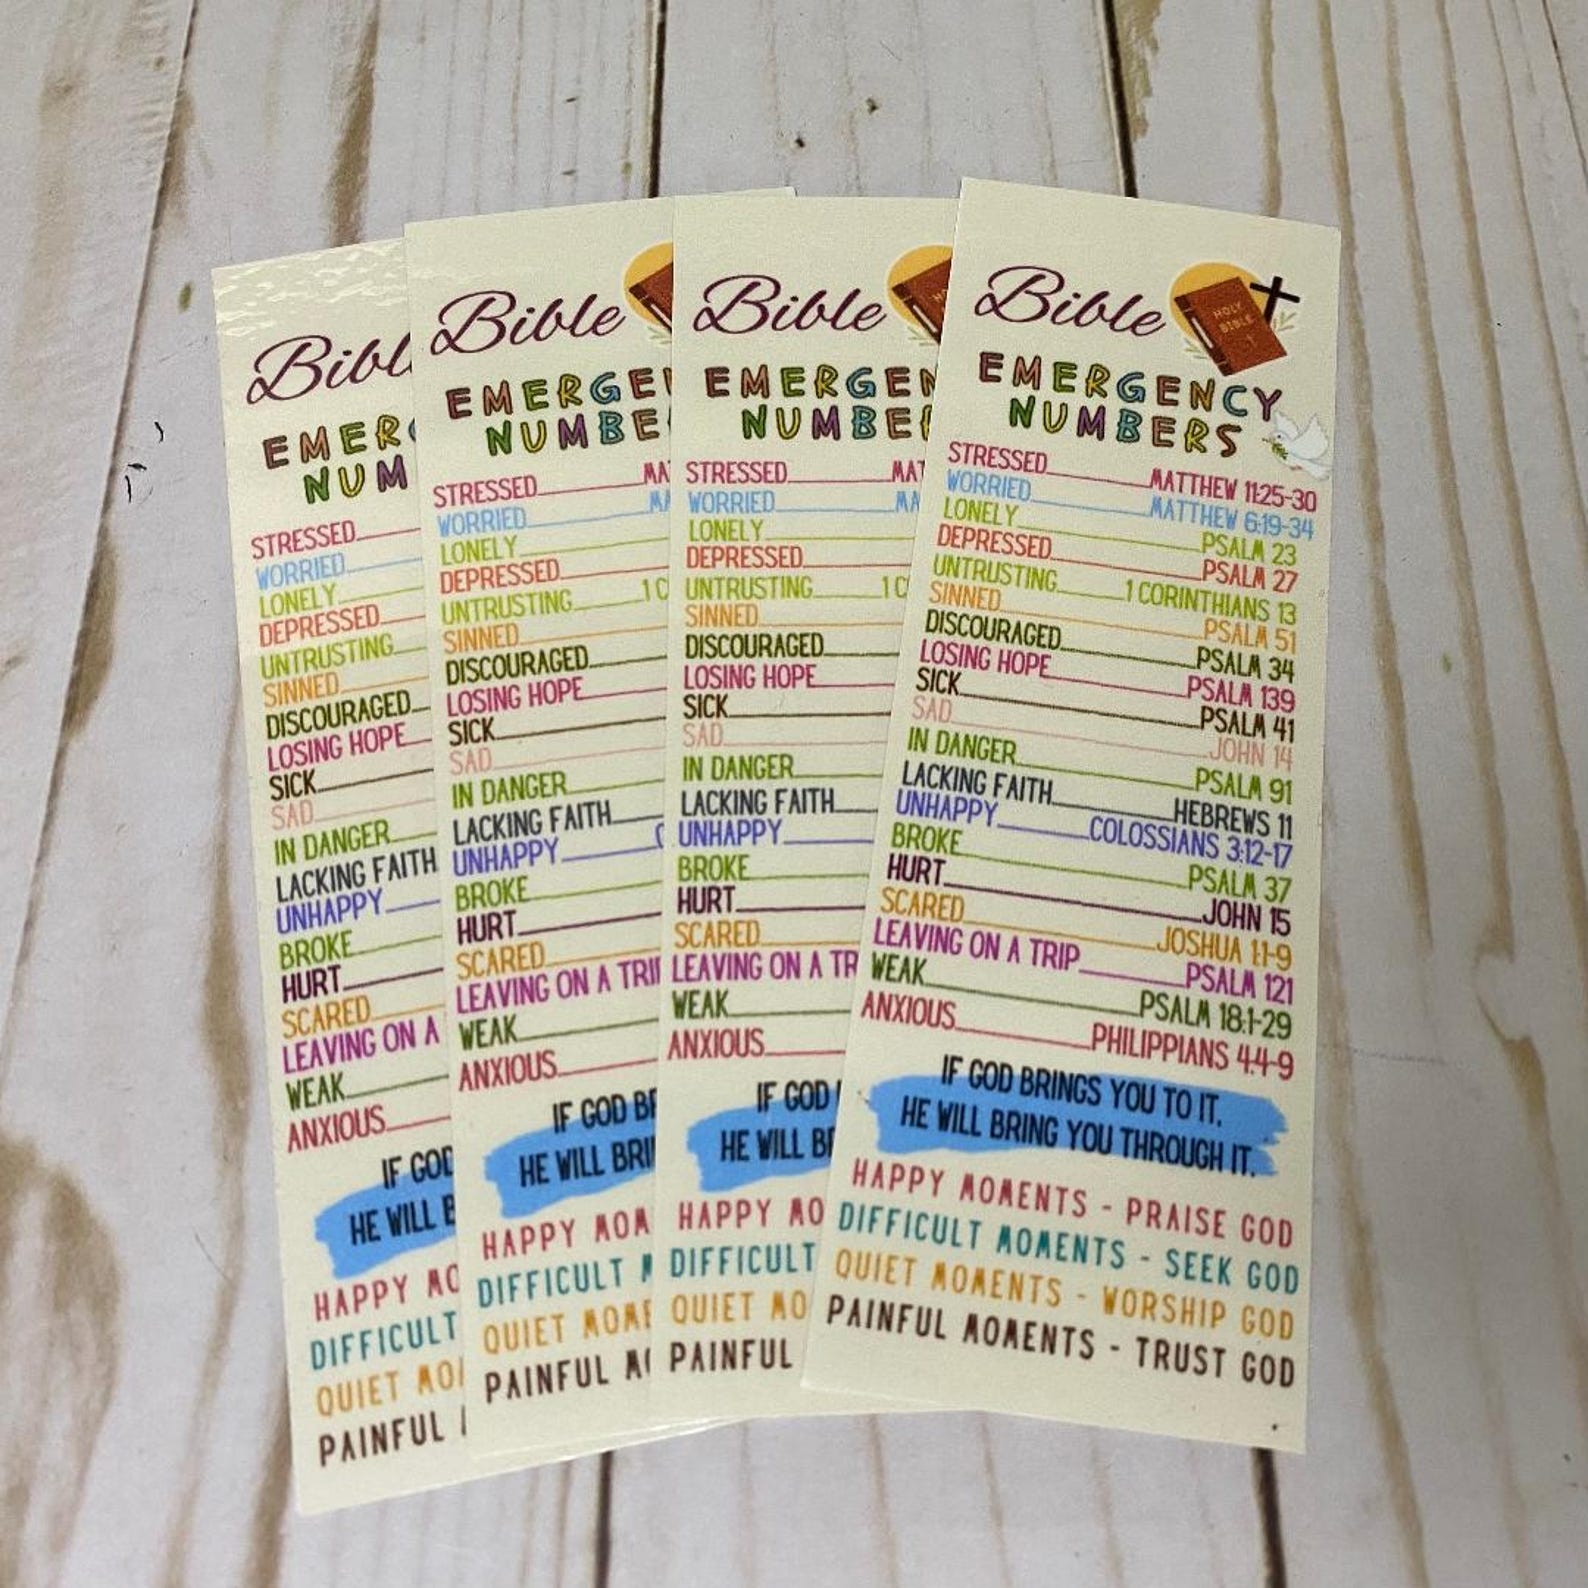 Bibl
EMERG
NUM
STRESSED
WORRIED
LONELY
DEPRESSED
UNTRUSTING
SINNED
DISCOURAGED
LOSING HOPE
SICK
SAD
IN DANGER
LACKING FAITH
UNHAPPY
BROKE
HURT
SCARED
LEAVING ON A
WEAK
ANXIOUS
IF GOD
HE WILL B
HAPPY MO
DIFFICULT
QUIET MO
PAINFUL
Bible
EMERGEN
NUMBE
STRESSED MAT
WORRIED MA
LONELY
DEPRESSED
UNTRUSTING 1 CO
SINNED
DISCOURAGED
LOSING HOPE
SICK
SAD
IN DANGER
LACKING FAITH
UNHAPPY C
BROKE
HURT
SCARED
LEAVING ON A TRIP
WEAK
ANXIOUS
IF GOD BR
HE WILL BRIN
HAPPY MOM
DIFFICULT M
QUIET MOME
PAINFUL MO
Bible
HO
EMERGEN
NUMBER
STRESSED MAT
WORRIED MA
LONELY
DEPRESSED
UNTRUSTING 1 C
SINNED
DISCOURAGED
LOSING HOPE
SICK
SAD
IN DANGER
LACKING FAITH
UNHAPPY
BROKE
HURT
SCARED
LEAVING ON A TR
WEAK
ANXIOUS
IF GOD
HE WILL BR
HAPPY MO
DIFFICULT
QUIET MO
PAINFUL
Bible
HOLY
BIBLE
EMERGENCY
NUMBERS
STRESSED MATTHEW 11:25-30
WORRIED MATTHEW 6:19-34
LONELY PSALM 23
DEPRESSED PSALM 27
UNTRUSTING 1 CORINTHIANS 13
SINNED PSALM 51
DISCOURAGED PSALM 34
LOSING HOPE PSALM 139
SICK PSALM 41
SAD JOHN 14
IN DANGER PSALM 91
LACKING FAITH HEBREWS 11
UNHAPPY COLOSSIANS 3:12-17
BROKE PSALM 37
HURT JOHN 15
SCARED JOSHUA 1:1-9
LEAVING ON A TRIP PSALM 121
WEAK PSALM 18:1-29
ANXIOUS PHILIPPIANS 4:4-9
IF GOD BRINGS YOU TO IT,
HE WILL BRING YOU THROUGH IT.
HAPPY MOMENTS - PRAISE GOD
DIFFICULT MOMENTS - SEEK GOD
QUIET MOMENTS - WORSHIP GOD
PAINFUL MOMENTS - TRUST GOD